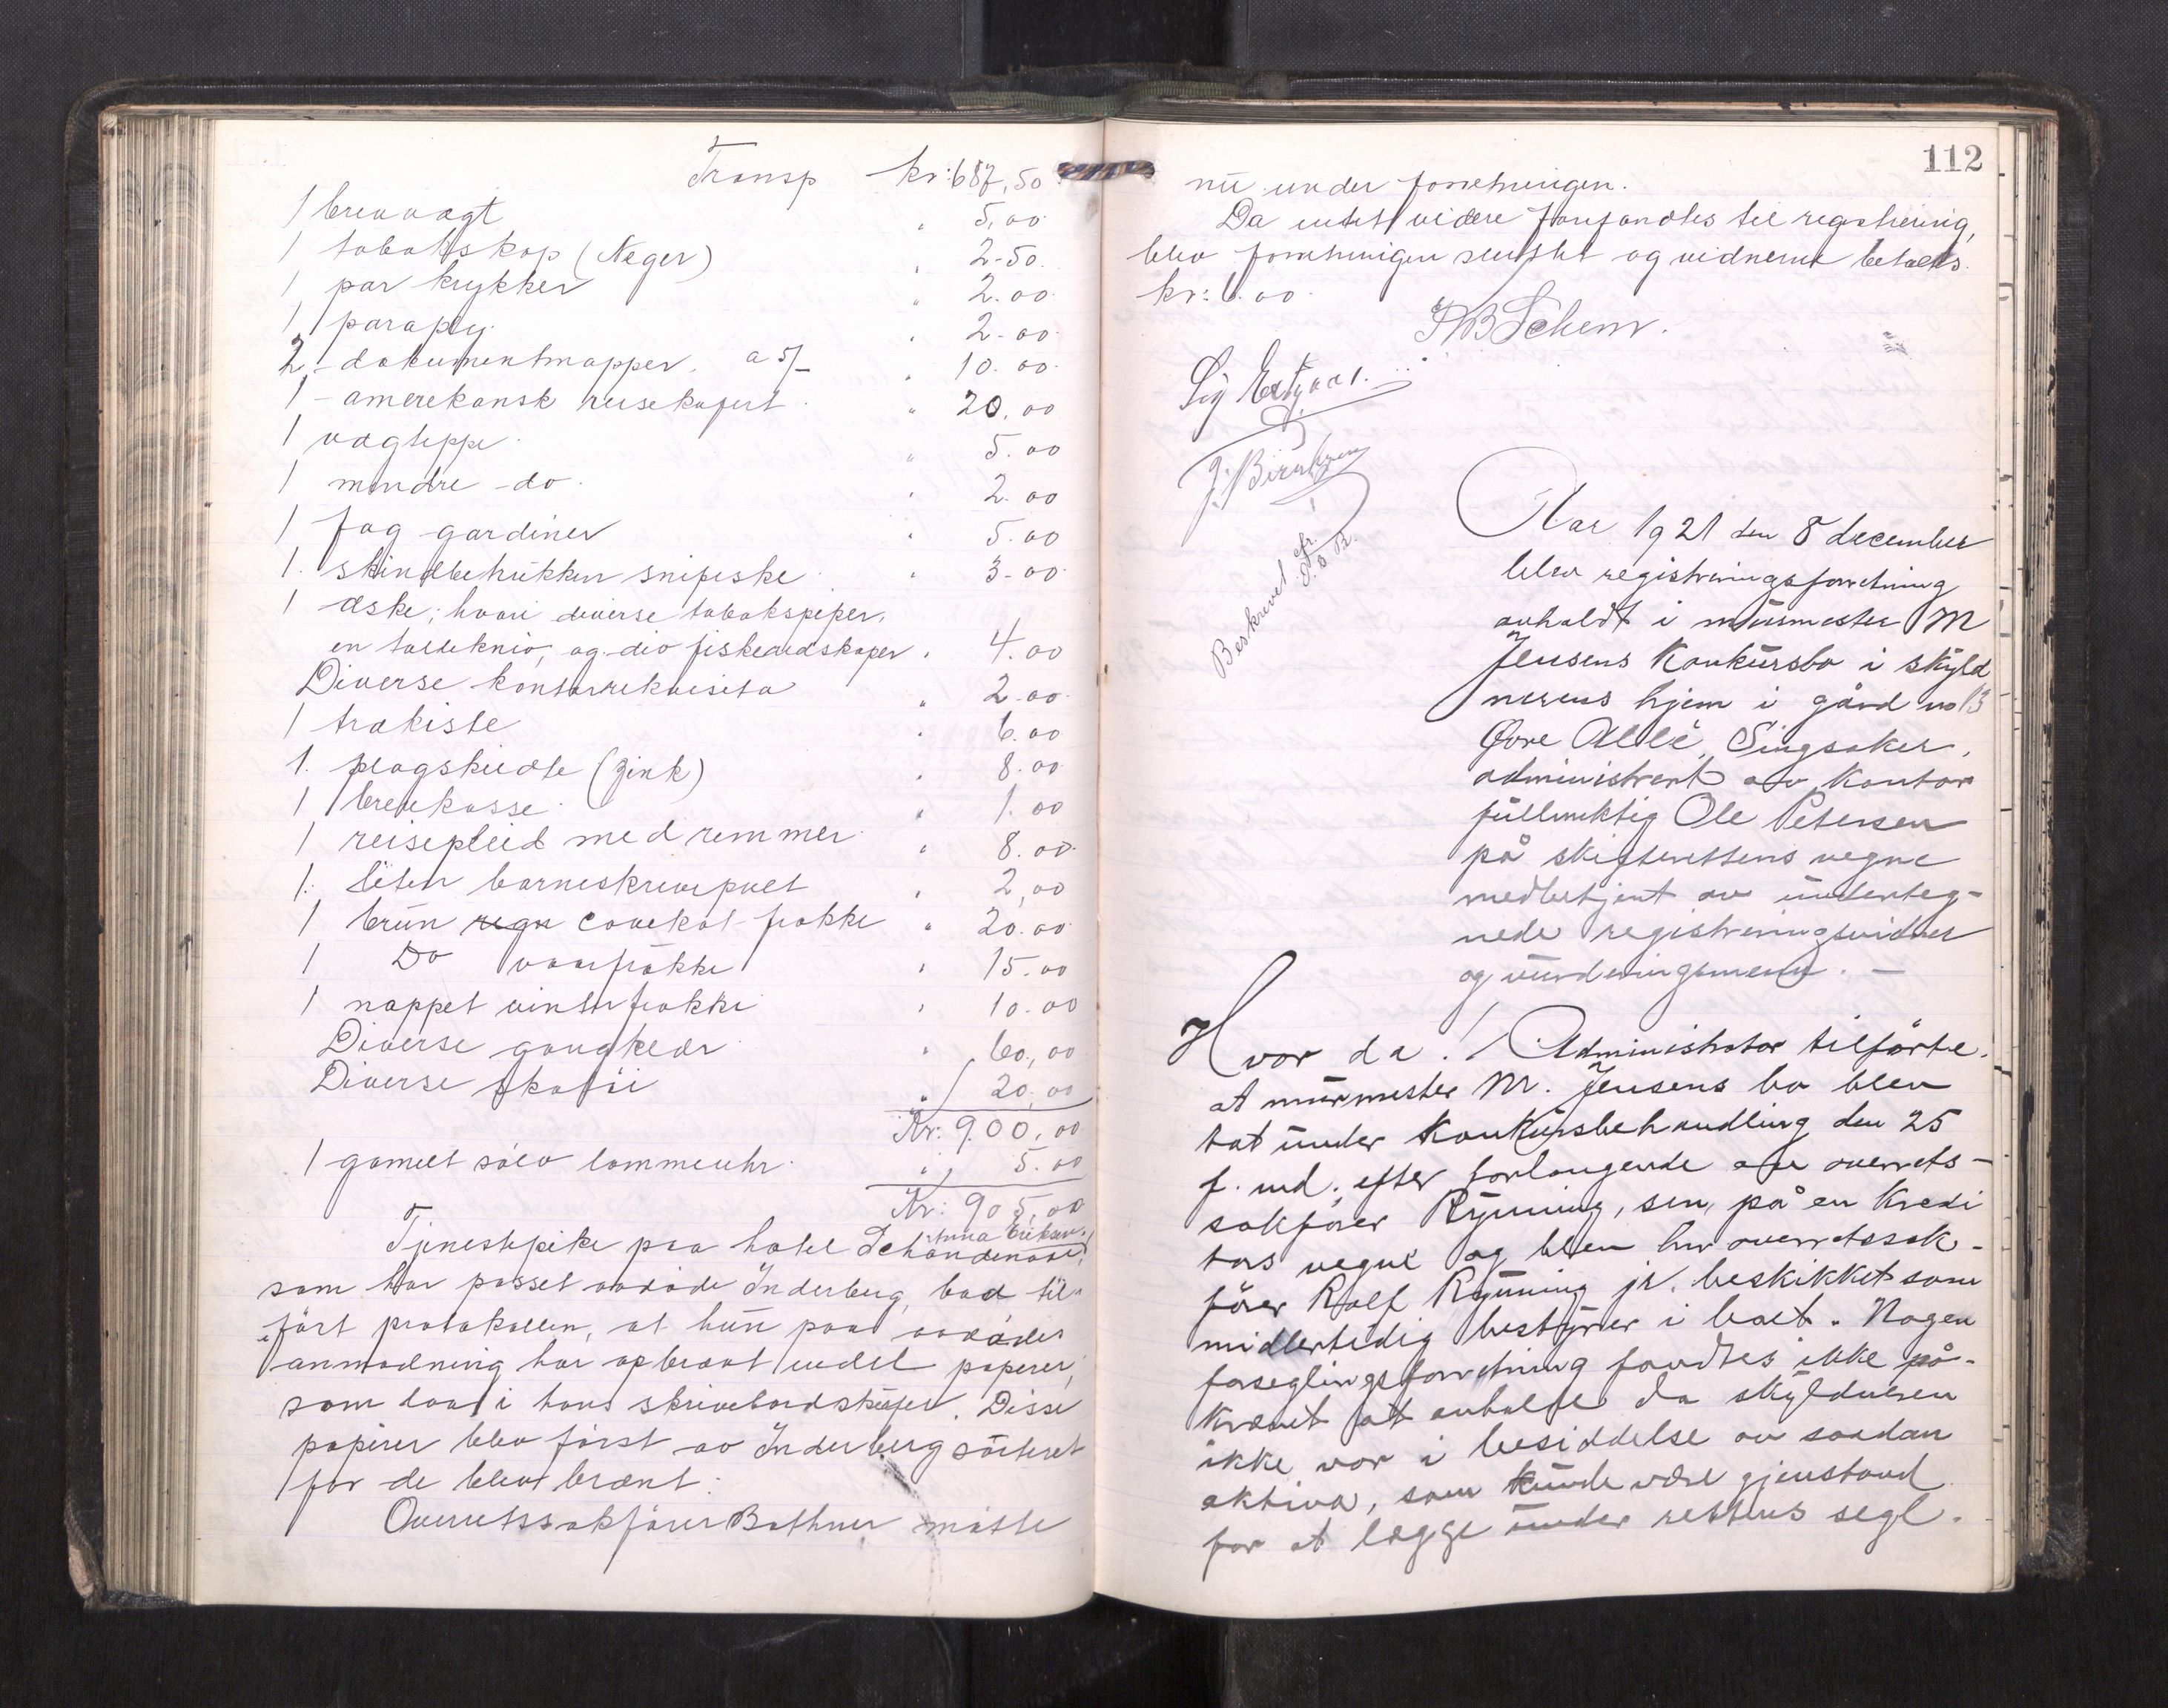 Transp kr: 687,50
1 brevvægt " 5,00
1 tobakskop (Neger) " 2-50
1 par krykker " 2.00
1 paraply " 2-00
2 - dokumentmapper. a 5/- " 10.00
1 - amerekansk reisekofert " 20.00
1 vægteppe " 5.00
1 mindre -do- " 2.00
1 fag gardiner " 5.00
1. skindbetrukken snipeske " 3-00
1 æske, hvori diverse tobakspiper,
en tolleknio, og div fiskeredskaper " 4.00
Diverse kontorrekvisita " 2-00
1 trækiste " 6.00
1. plagskudte (Zink) " 8.00
1 brevkasse " 1.00
1 reisepleid med remmer " 8.00
1. liten barneskrivepult " 2,00
1 brun regn covekot frakke " 20.00
1 Do vaarfrakke " 15.00
1 nappet vinterfrakke " 10.00
Diverse gangklær " 60,00
Diverse skotöi " 20,00
Kr: 900,00
1 gamelt sölv lommeuhr " 5.00
Kr: 905,00
Anna Eriksen
Tjenestepike paa hotel
som har passet avdöde Inderberg, bad til-
fört protokollen, at hun paa avdödes
anmodning har opbrent endel papirer,
som laa i hans skrivebordskuffer. Disse
papirer blev först av Inderberg sorteret
för de blev brænt.
Overretssakförer Bathner mötte
112
nu under forretningen.
Da intet videre forefandtes til registrering,
blev forretningen sluttet og vidnerne betaltes
kr: 6.00
Sig
Beskrevet
Aar 1921 den 8 december
blev registreringsforretning
avholdt i murmester M
Jensens Konkursbo i skyld
nerens hjem i gård no 13
Övre Allé, Singsaker,
administrert av kontor
fullmektig Ole Petersen
på skifterettens vegne
medbetjent av underteg-
nede registreringsvidner
og vurderingsmenn. -
Hvor da! Administrator tilförte
at murmester M. Jensens bo blev
tat under Konkursbehandling den 25
f. md. efter forlangende av overrets-
sakförer Rynning, sen, på en Kredi
tors vegne og blev hr overretssak-
förer Rolf Rynning jr. beskikket som
midlertidig bestyrer i boet. Nogen
forseglingsforretning fandtes ikke på-
krævet at avholde da skyldneren
ikke var i besiddelse av saadan
aktiva, som kunde være gjenstand
for at lægge under rettens segl.